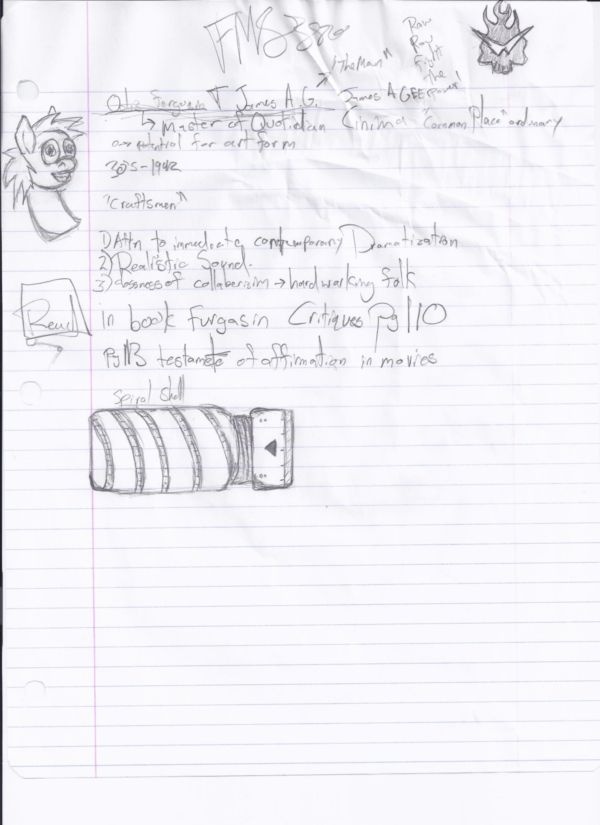 FMS 380
"theMan"
Raw
Raw
Fight
The
Power!
Otis Ferguson James A.G. James AGEE
↳ Master of Quotidian Cinima "Common Place" ordinary
potential for art form
30's-1942
"Craftsmen"
1) Attn to immediate contemporary Dramatization
2) Realistic Sound.
3) closness of collaberizim → hard working folk
Read
in book Furgasin Critiques Pg 110
Pg 113 testamete of affirmation in movies
Spiral Shell